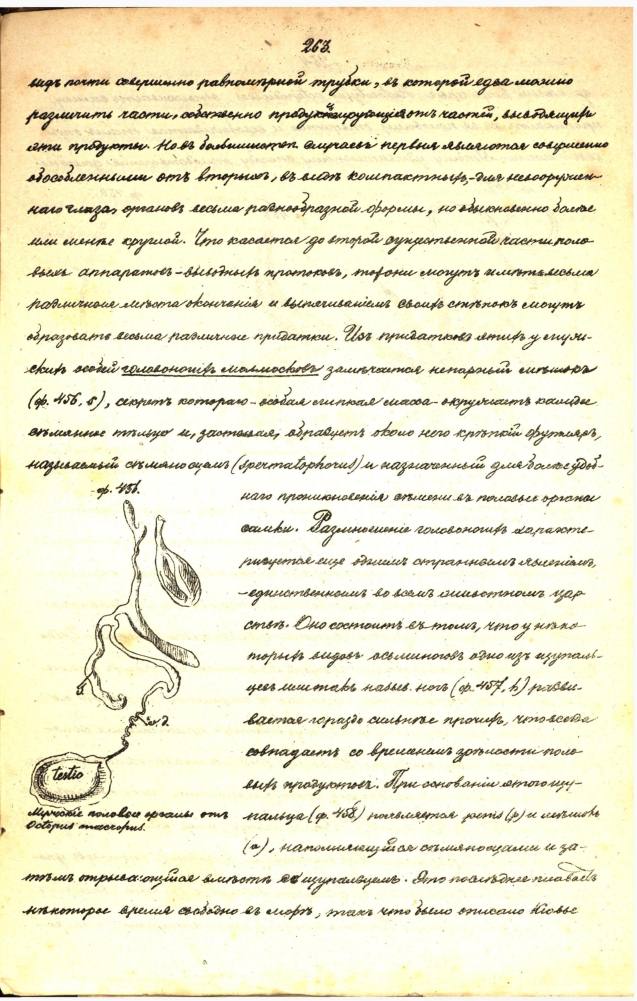 263.
видъ почти совершенно равномѣрной трубки, въ которой едва можно
различить части, собственно продуктирующія отъ частей, выводящихъ
эти продукты. Но въ большинствѣ случаевъ первыя являются совершенно
обособленными отъ вторыхъ, въ видѣ компактныхъ, для невооружен-
наго глаза, органовъ весьма разнообразной формы, но обыкновенно болѣе
или менѣе круглой. Что касается до второй существенной части поло-
выхъ аппаратовъ – выводныхъ протоковъ, то они могутъ имѣть весьма
различныя мѣста окончанія и выпячиваніемъ своихъ стѣнокъ могутъ
образовать весьма различные придатки. Изъ придатковъ этихъ у муж-
скихъ особей головоногихъ моллюсковъ замѣчается непарный мѣшокъ
(ф. 456, s), секретъ котораго – особая липкая масса – окружаетъ каждое
сѣмянное тѣльцо и, застывая, образуетъ около него крѣпкій футляръ,
называемый сѣмяносцемъ (spermatophorus) и назначенный для болѣе удоб-
ф. 456.
наго проникновенія сѣмени въ половые органы
самки. Размноженіе головоногихъ характе-
ризуется еще однимъ страннымъ явленіемъ,
– единственнымъ во всемъ животномъ цар-
ствѣ. Оно состоитъ въ томъ, что у нѣко-
торыхъ видовъ осьминоговъ одно изъ щупаль-
цевъ или такъ назыв. ногъ (ф. 457, h) разви-
вается гораздо сильнѣе прочихъ, что всегда
v. d.
совпадаетъ со временемъ зрѣлости поло-
testis
выхъ продуктовъ. При основаніи этого щу-
Мужскіе половые органы отъ
Octopus macropus.
пальца (ф. 458) появляется penis (p) и мѣшокъ
(a), наполняющійся сѣмяносцами и за-
тѣмъ отрывающійся вмѣстѣ съ щупальцемъ. Это послѣднее плаваетъ
нѣкоторое время свободно въ морѣ, такъ что было описано Кювье